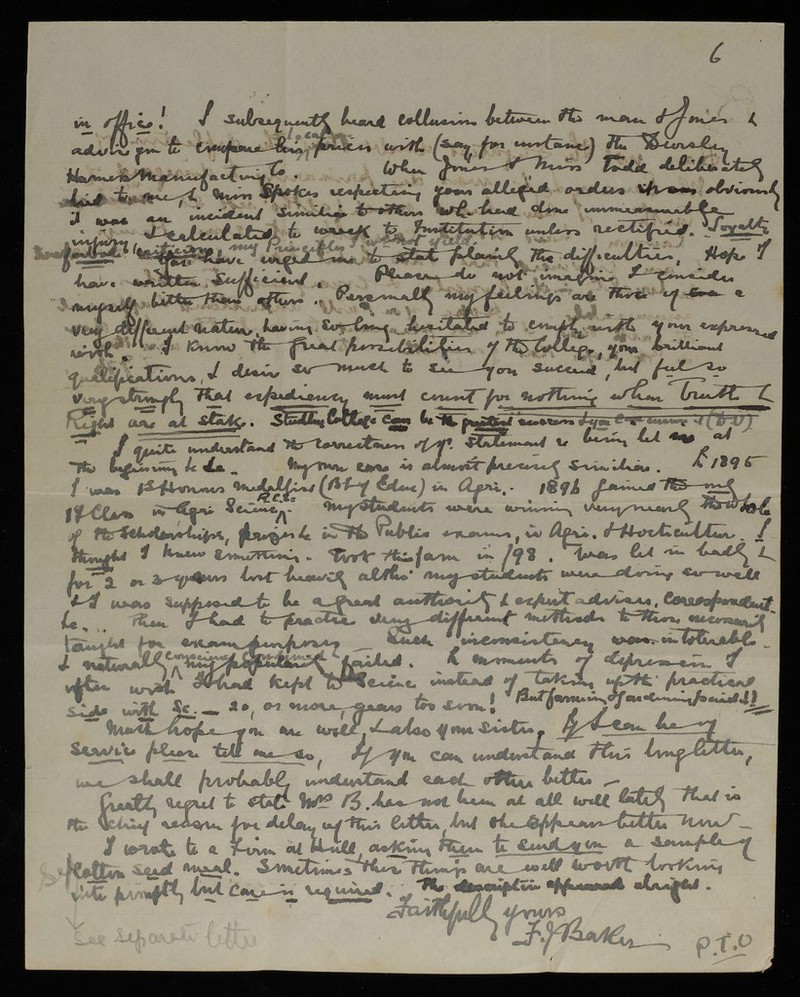 6
in office! I subsequently heard collusion between the man & Jones to
advise you to compare his local prices with (say for instance) the Dursley
Harness Manufacturing Co. When Jones & Miss Todd deliberately
lied to me, & Miss Spokes respecting your alleged orders it was obviously
it was an incident similar to others who had done immeasurable
injury & calculated to wreck the Institution unless rectified. Loyalty
my Principles I will not yield
You have urged me to state plainly the difficulties, Hope I
have written sufficient. Please do not imagine I consider
myself better than others. Personally my feelings are those of a
very different nature, having so long hesitated to comply with your expressed
wish. I know the great possibilities of the College, your brilliant
qualifications, & desire so much to see you succeed, but feel so
very strongly that expediency must count for nothing when Truth &
Right are at stake. Studley College can be the greatest success (D.V)
I quite understand the correctness of yr. statement re being let at
the beginning &c &c. My own case is almost precisely similar. In 1895
I was 1st Honours Medallist (Bd of Educ) in Agri. 1896 gained the only
1st Class in Agri Science R.C.S. My students were winning very nearly the whole
of the Scholarships, prizes &c in the Public exams, in Agri. & Horticulture. I
thought I knew something. Took this farm in /98. Was let in badly &
for 2 or 3 years lost heavily altho' my students were doing so well
& I was supposed to be a great authority & expert adviser, Correspondent
&c... Then I had to practice very different methods to those necessarily
taught for exam purposes — Such inconsistency was intolerable.
& naturally my popularity failed. In moments of depression I
often wish I had kept to Science instead of taking up the practical
side with Sc. — 20, or more, years too soon! But farming & gardening paid!!
Much hope you are well, & also your sister. If I can be of
service please tell me so, If you can understand this long letter,
we shall probably understand each other better —
Greatly regret to state Mrs B. has not been at all well lately that is
the chief reason for delay of this letter, but she appears better now —
I wrote to a Firm at Hull, asking them to send you a sample of
Cotton seed meal. Sometimes their things are well worth looking
into promptly but care is required. The description appeared alright.
Faithfully yours
F. J Baker
P.T.O
See separate letter